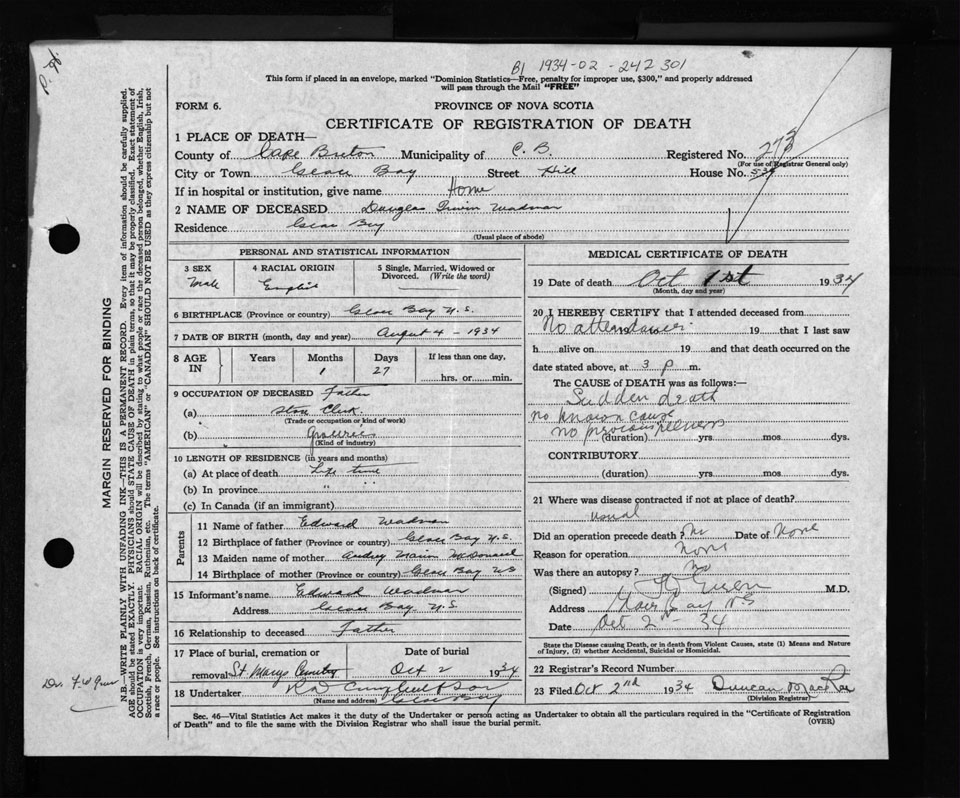 P. H.
B1 1934-02-242301
This form if placed in an envelope, marked "Dominion Statistics—Free, penalty for improper use, $300," and properly addressed
will pass through the Mail "FREE"
FORM 6.
PROVINCE OF NOVA SCOTIA
CERTIFICATE OF REGISTRATION OF DEATH
1 PLACE OF DEATH—
County of Cape Breton Municipality of C. B. Registered No. 273
(For use of Registrar General only)
City or Town Glace Bay Street Hill House No.
If in hospital or institution, give name Home
2 NAME OF DECEASED Douglas Irwin Wadman
Residence Glace Bay
(Usual place of abode)
PERSONAL AND STATISTICAL INFORMATION
3 SEX Male
4 RACIAL ORIGIN English
5 Single, Married, Widowed or Divorced. (Write the word)
6 BIRTHPLACE (Province or country) Glace Bay N.S.
7 DATE OF BIRTH (month, day and year) August 4 - 1934
8 AGE IN Years Months 1 Days 27 If less than one day, hrs. or min.
9 OCCUPATION OF DECEASED Father
(a) Store Clerk
(Trade or occupation or kind of work)
(b) Groceries
(Kind of industry)
10 LENGTH OF RESIDENCE (in years and months)
(a) At place of death Life time
(b) In province " "
(c) In Canada (if an immigrant)
Parents
11 Name of father Edward Wadman
12 Birthplace of father (Province or country) Glace Bay N.S.
13 Maiden name of mother Audrey McDonald
14 Birthplace of mother (Province or country) Glace Bay NS
15 Informant's name Edward Wadman
Address Glace Bay N.S
16 Relationship to deceased Father
17 Place of burial, cremation or removal St Marys Cemetery
Date of burial Oct 2 1934
18 Undertaker
(Name and address) Glace Bay
MEDICAL CERTIFICATE OF DEATH
19 Date of death Oct 1st 1934
(Month, day and year)
20 I HEREBY CERTIFY that I attended deceased from
No attendance 19 that I last saw
h alive on 19 and that death occurred on the
date stated above, at 3 p m.
The CAUSE OF DEATH was as follows:—
Sudden death
no known cause
no previous illness
(duration) yrs. mos. dys.
CONTRIBUTORY
(duration) yrs. mos. dys.
21 Where was disease contracted if not at place of death?
usual
Did an operation precede death? No Date of None
Reason for operation None
Was there an autopsy? No
(Signed) M.D.
Address Glace Bay NS
Date Oct 2 - 34
State the Disease causing Death, or in death from Violent Causes, state (1) Means and Nature
of Injury, (2) whether Accidental, Suicidal or Homicidal.
22 Registrar's Record Number
23 Filed Oct 2nd 1934 Duncan MacRae
(Division Registrar)
Sec. 46—Vital Statistics Act makes it the duty of the Undertaker or person acting as Undertaker to obtain all the particulars required in the "Certificate of Registration
of Death" and to file the same with the Division Registrar who shall issue the burial permit.
(OVER)
MARGIN RESERVED FOR BINDING
N.B.—WRITE PLAINLY WITH UNFADING INK—THIS IS A PERMANENT RECORD. Every item of information should be carefully supplied.
AGE should be stated EXACTLY. PHYSICIANS should STATE CAUSE OF DEATH in plain terms, so that it may be properly classified. Exact statement of
OCCUPATION is very important. RACIAL ORIGIN will be described by stating to what people or race the deceased person belonged, whether English, Irish,
Scottish, French, German, Russian, Ruthenian, etc. The terms "AMERICAN" or "CANADIAN" SHOULD NOT BE USED as they express citizenship but not
a race or people. See instructions on back of certificate.